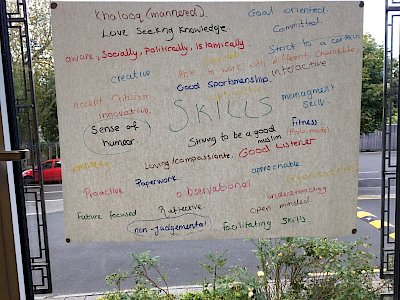 Kholacq (mannered).
Goal oriented.
Love Seeking Knowledge
Committed.
aware, Socially, Politically, Islamically.
Strict to a certain
creative
Able to work with
interactive
Good Sportsmenship.
accept Critisism
innovative
SKILLS
managment
Skill
Sense of
humor.
fitness
Striving to be a good
muslim
(Role model)
Good Listener
empathy
Loving/compassionate.
aproachable
Proactive
Paperwork
observational
understanding
Open minded
future focused
Reflective
non-Judgemental
facilitating Skills.